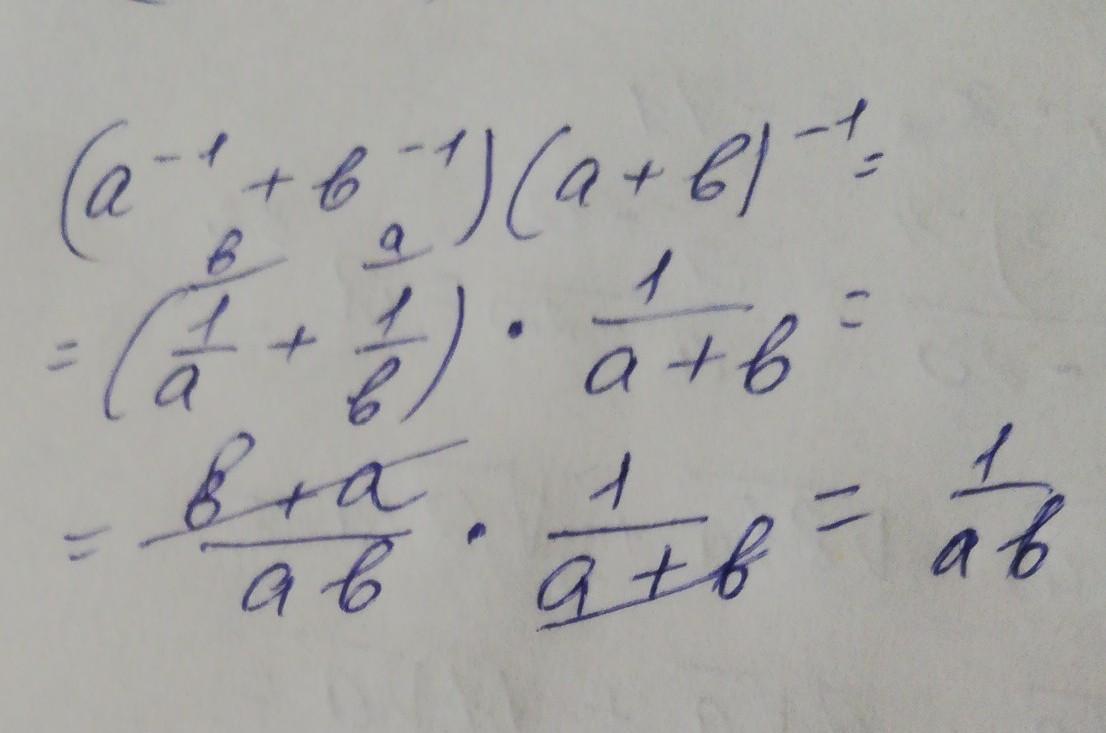 (a⁻¹ + b⁻¹)(a + b)⁻¹ =
b a
= (1/a + 1/b) · 1/(a + b) =
= (b + a)/(ab) · 1/(a + b) = 1/(ab)